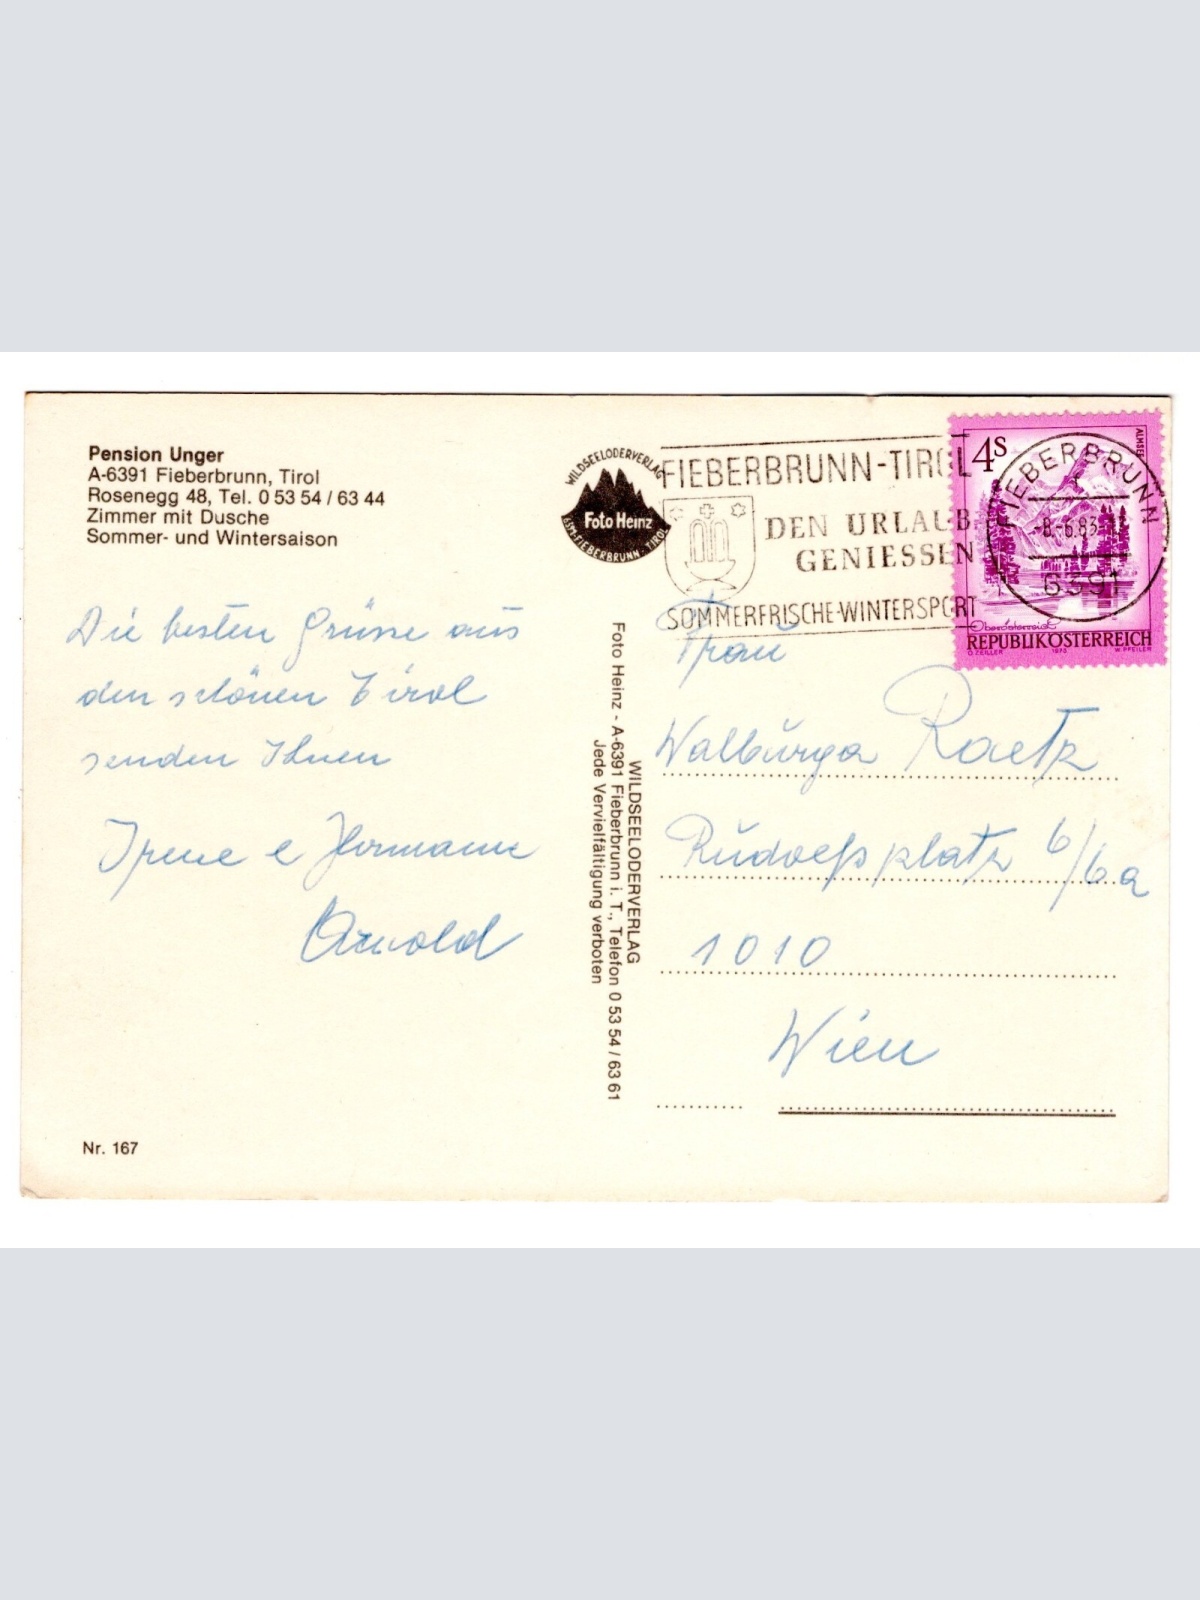 Pension Unger
A-6391 Fieberbrunn, Tirol
Rosenegg 48, Tel. 0 53 54 / 63 44
Zimmer mit Dusche
Sommer- und Wintersaison
Die besten Grüsse aus
den schönen Tirol
senden Ihnen
Irene e Hermann
Arnold
Nr. 167
WILDSEELODERVERLAG
Foto Heinz
FIEBERBRUNN - TIROL
WILDSEELODERVERLAG
Foto Heinz - A-6391 Fieberbrunn i. T., Telefon 0 53 54 / 63 61
Jede Vervielfältigung verboten
FIEBERBRUNN-TIROL
DEN URLAUB
GENIESSEN
SOMMERFRISCHE-WINTERSPORT
4S
ALMSEE
FIEBERBRUNN
-8.-6.83
6391
Oberösterreich
REPUBLIK ÖSTERREICH
O. ZEILLER 1975 W. PFEILER
Frau
Walburga Raetz
Rudolfsplatz 6/6a
1010
Wien